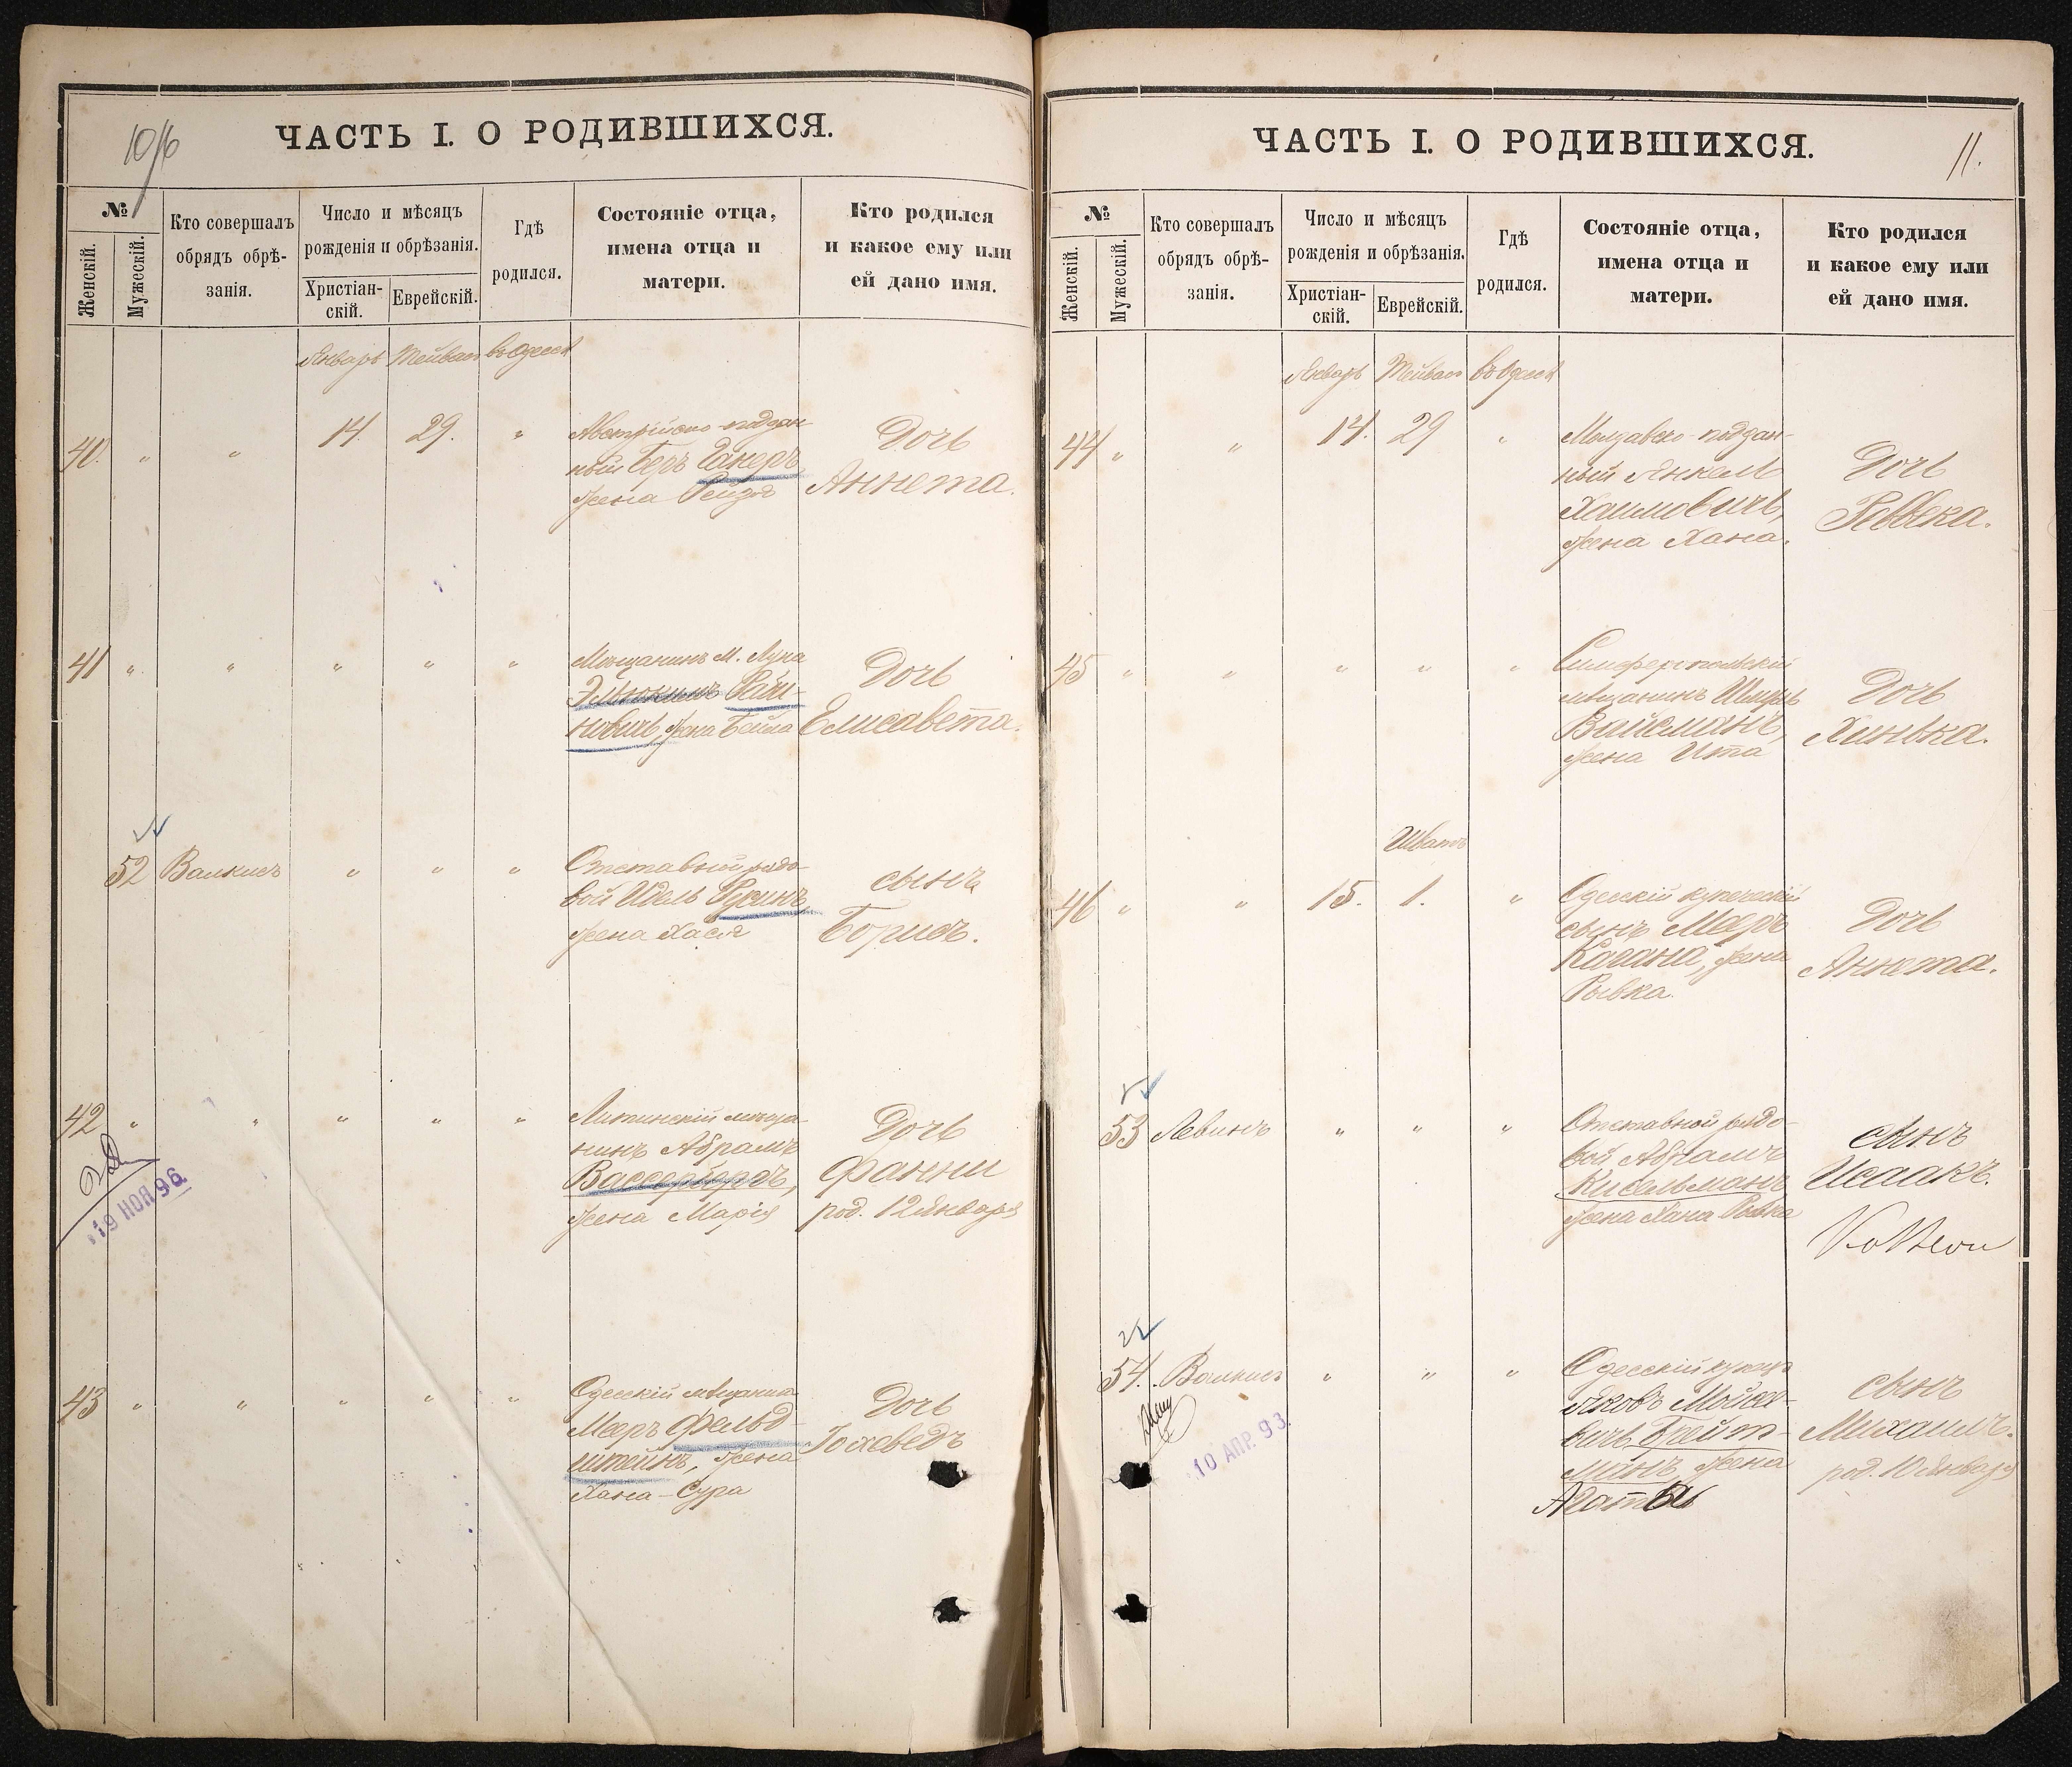 10/б
ЧАСТЬ I. О РОДИВШИХСЯ.
№
Женскій.
Мужескій.
Кто совершалъ
обрядъ обрѣ-
занія.
Число и мѣсяцъ
рожденія и обрѣзанія.
Христіан-
скій.
Еврейскій.
Гдѣ
родился.
Состояніе отца,
имена отца и
матери.
Кто родился
и какое ему или
ей дано имя.
Январь Тейвас въ Одессѣ
40. " " 14. 29. "
Австрійско-поддан-
ный Беръ
жена Рейзя
Дочь
Аннета.
41 " " " " "
Мѣщанинъ М.
жена Бейла
Дочь
Елисавета.
52 Валкисъ " " "
Отставной рядо-
вой Идель Русинъ,
жена Хася
сынъ
Борисъ.
42 " " " " "
Литинскій мѣща-
нинъ Абрамъ
жена Марія
Дочь
Фанни
род. 12 Января
19 НОЯ 96
43 " " " " "
Одесскій мѣщанинъ
Мееръ Фельд-
штейнъ, жена
Хана-Сура
Дочь
Іохеведъ
ЧАСТЬ I. О РОДИВШИХСЯ.
11.
№
Женскій.
Мужескій.
Кто совершалъ
обрядъ обрѣ-
занія.
Число и мѣсяцъ
рожденія и обрѣзанія.
Христіан-
скій.
Еврейскій.
Гдѣ
родился.
Состояніе отца,
имена отца и
матери.
Кто родился
и какое ему или
ей дано имя.
Январь Тейвас въ Одессѣ
44 " " 14. 29 "
Молдавско-поддан-
ный Янкель
Хаимовичъ,
жена Хана.
Дочь
Ревека.
45 " " " " "
Симферопольскій
мѣщанинъ Шмуль
Вайсманъ,
жена Ита
Дочь
Хинька.
Шватъ
46 " " 15. 1. "
Одесскій купеческій
сынъ Мееръ
Кагана, жена
Рывка.
Дочь
Аннета.
53 Левинъ " " "
Отставной рядо-
вой Абрамъ
Кисельманъ
жена Хана Рывка
сынъ
Исаакъ.
54. Валкисъ " " "
Одесскій купецъ
Яковъ Мойсе-
вичъ Брейт-
манъ, жена
сынъ
Михаилъ.
род. 10 Января
10 АПР. 93.